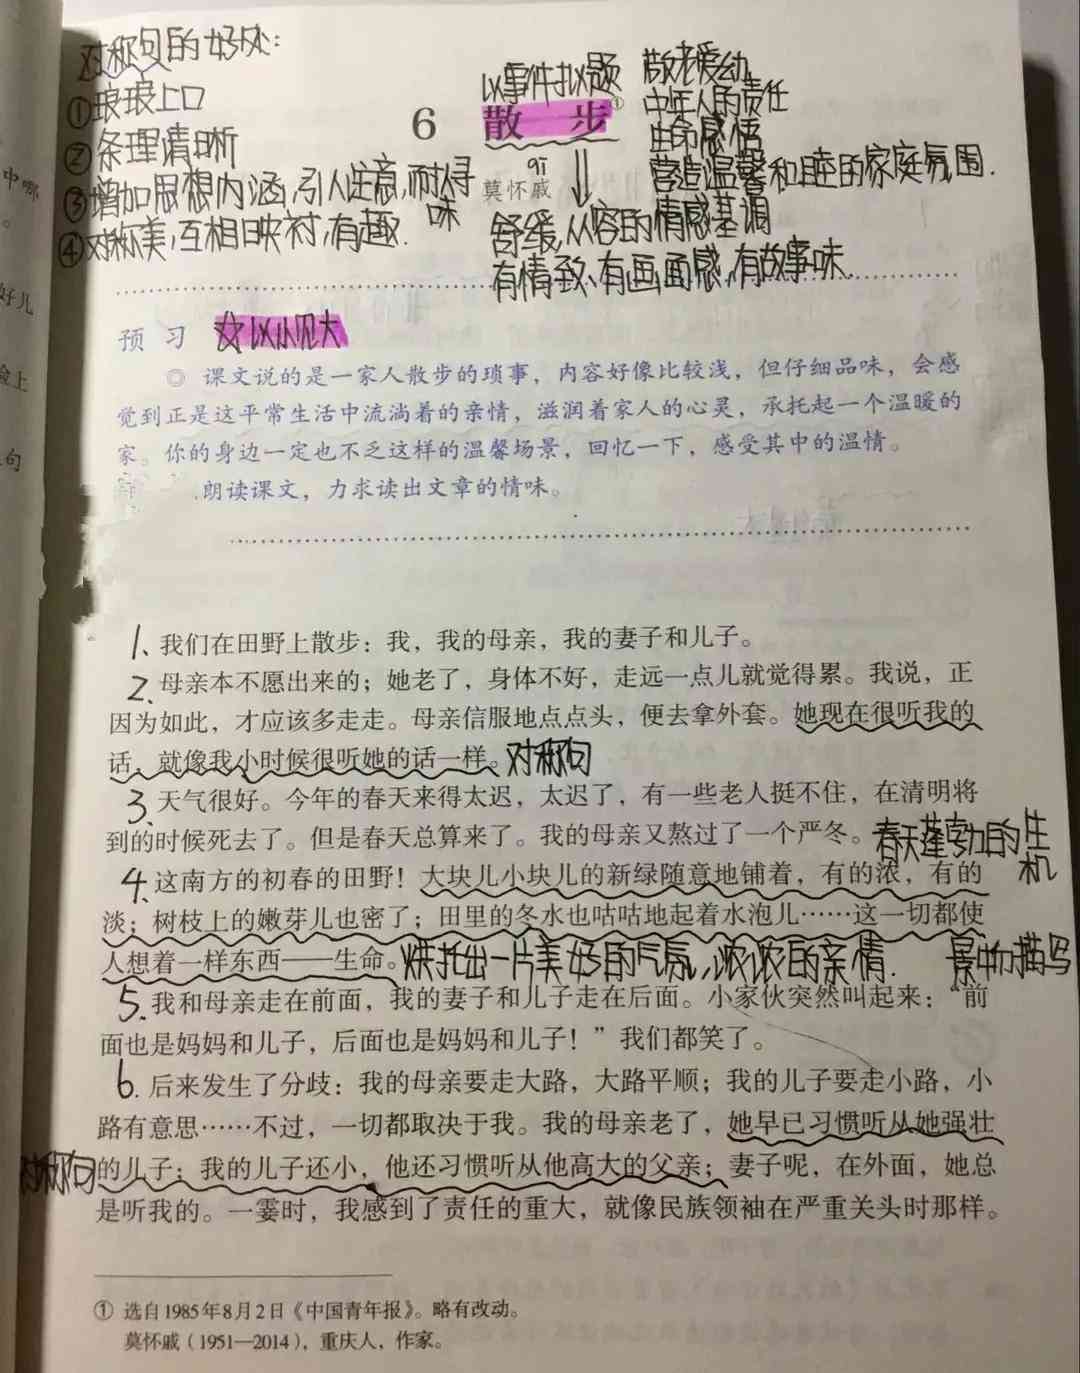 对称句的好处：
①琅琅上口
②条理清晰
③增加思想内涵,引人注意,而耐人寻
味
④对称美,互相映衬,有趣.
以事件拟题
6 散 步①
qī
莫怀戚
敬老爱幼
中年人的责任
生命感悟
营造温馨和睦的家庭氛围.
舒缓,从容的情感基调
有情致、有画面感,有故事味.
中哪
。
好儿
脸上
句
预 习 ☆以小见大
◎ 课文说的是一家人散步的琐事，内容好像比较浅，但仔细品味，会感
觉到正是这平常生活中流淌着的亲情，滋润着家人的心灵，承托起一个温暖的
家。你的身边一定也不乏这样的温馨场景，回忆一下，感受其中的温情。
朗读课文，力求读出文章的情味。
1、我们在田野上散步：我，我的母亲，我的妻子和儿子。
2、母亲本不愿出来的；她老了，身体不好，走远一点儿就觉得累。我说，正
因为如此，才应该多走走。母亲信服地点点头，便去拿外套。她现在很听我的
话，就像我小时候很听她的话一样。对称句
3、天气很好。今年的春天来得太迟，太迟了，有一些老人挺不住，在清明将
到的时候死去了。但是春天总算来了。我的母亲又熬过了一个严冬。春天蓬勃的生
机
4、这南方的初春的田野！大块儿小块儿的新绿随意地铺着，有的浓，有的
淡；树枝上的嫩芽儿也密了；田里的冬水也咕咕地起着水泡儿……这一切都使
人想着一样东西——生命。烘托出一片美好的气氛,浓浓的亲情. 景物描写
5、我和母亲走在前面，我的妻子和儿子走在后面。小家伙突然叫起来：“前
面也是妈妈和儿子，后面也是妈妈和儿子！”我们都笑了。
6.后来发生了分歧：我的母亲要走大路，大路平顺；我的儿子要走小路，小
路有意思……不过，一切都取决于我。我的母亲老了，她早已习惯听从她强壮
对称句的儿子；我的儿子还小，他还习惯听从他高大的父亲；妻子呢，在外面，她总
是听我的。一霎时，我感到了责任的重大，就像民族领袖在严重关头时那样。
① 选自1985年8月2日《中国青年报》。略有改动。
莫怀戚（1951—2014），重庆人，作家。